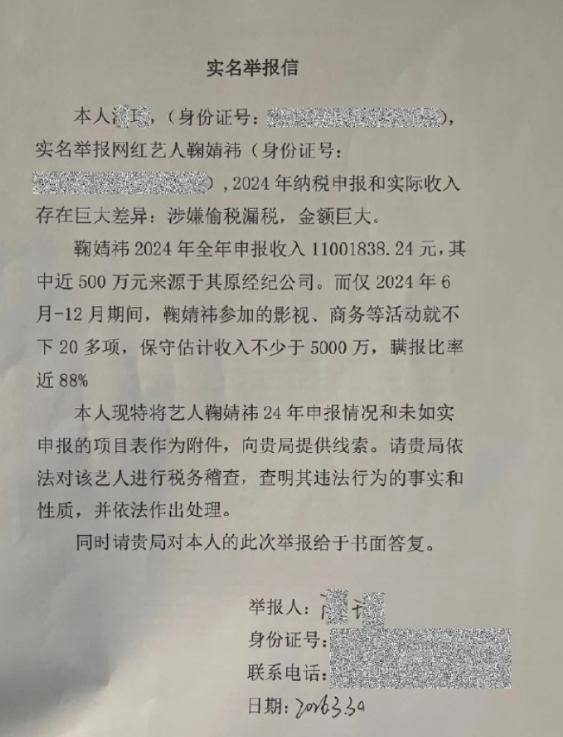 实名举报信
本人,（身份证号：),
实名举报网红艺人鞠婧祎（身份证号：
）,2024 年纳税申报和实际收入
存在巨大差异：涉嫌偷税漏税，金额巨大。
鞠婧祎 2024 年全年申报收入 11001838.24 元,其
中近 500 万元来源于其原经纪公司。而仅 2024 年 6
月-12 月期间，鞠婧祎参加的影视、商务等活动就不
下 20 多项，保守估计收入不少于 5000 万，瞒报比率
近 88%
本人现特将艺人鞠婧祎 24 年申报情况和未如实
申报的项目表作为附件，向贵局提供线索。请贵局依
法对该艺人进行税务稽查，查明其违法行为的事实和
性质，并依法作出处理。
同时请贵局对本人的此次举报给于书面答复。
举报人：
身份证号：
联系电话：
日期：2026.3.30